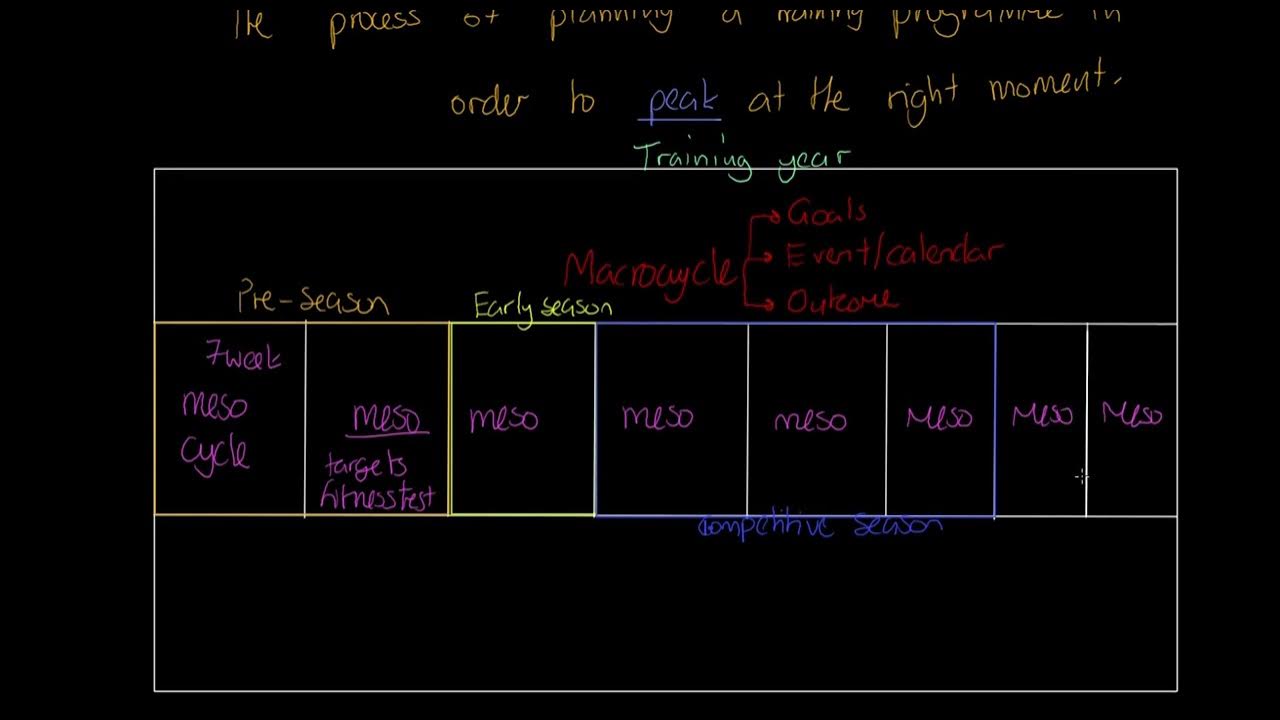 The process of planning a training programme in
order to peak at the right moment.
Training year
Goals
Macrocycle Event/calendar
Outcome
Pre-season Early season
7 week
meso meso meso meso meso Meso Meso Meso
cycle targets
fitness test
Competitive season